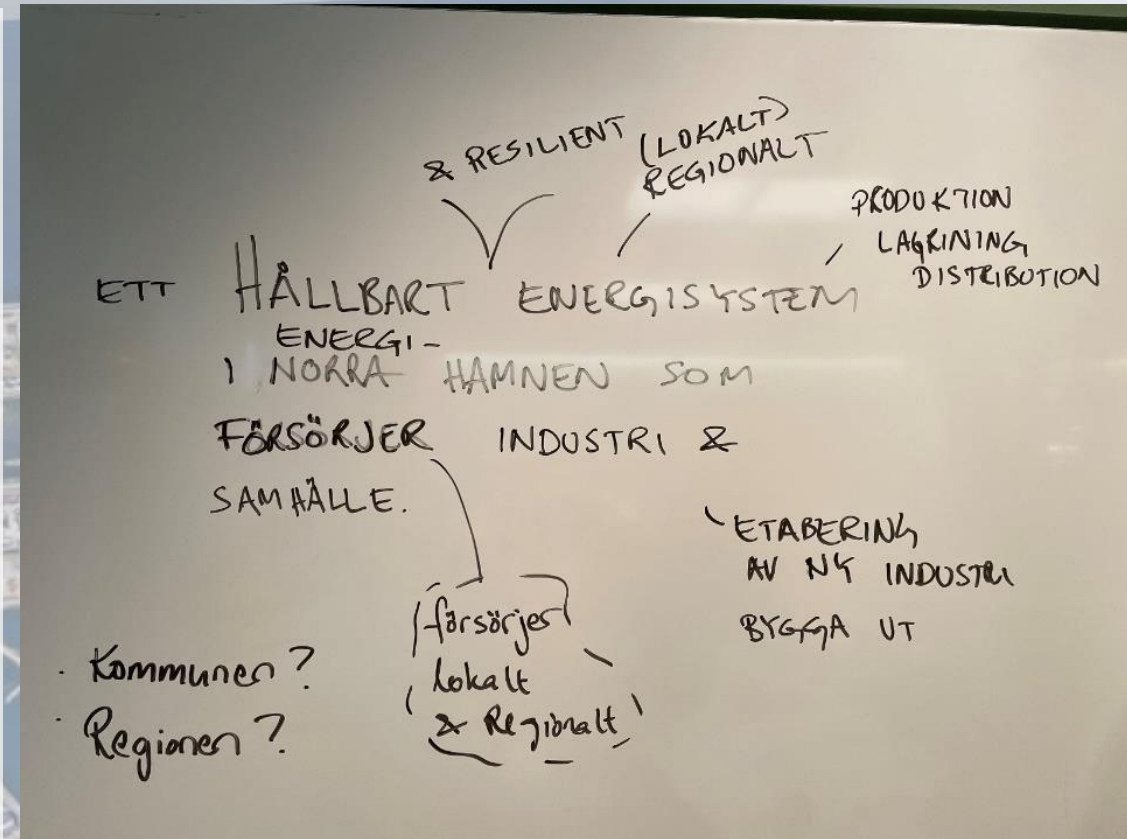 & RESILIENT
(LOKALT)
REGIONALT
PRODUKTION
LAGRINING
DISTRIBUTION
ETT HÅLLBART ENERGISYSTEM
ENERGI-
I NORRA HAMNEN SOM
FÖRSÖRJER INDUSTRI &
SAMHÄLLE.
ETABERING
AV NY INDUSTRI
BYGGA UT
försörjer
lokalt
& Regionalt
· Kommunen?
· Regionen?